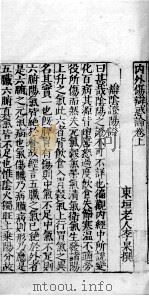 内外傷辯惑論卷上
東垣老人李杲撰
辯陰證陽證
曰甚哉陰陽之證不可不詳也徧觀內經中所說變
化百病其源皆由喜怒過度飲食失節寒溫不適勞
役所傷而然夫元氣穀氣榮氣清氣衛氣生發諸陽
上升之氣此六者皆飲食入胃穀氣上行胃氣之異
名其實一也既脾胃有傷則中氣不足中氣不足則
六腑陽氣皆絕於外故經言五臟之氣已絕於外者
是六腑之元氣病也氣傷臟乃病臟病則形乃應是
五臟六腑真氣皆不足也惟陰火獨旺上乘陽分故
http://www.mtoou.info/